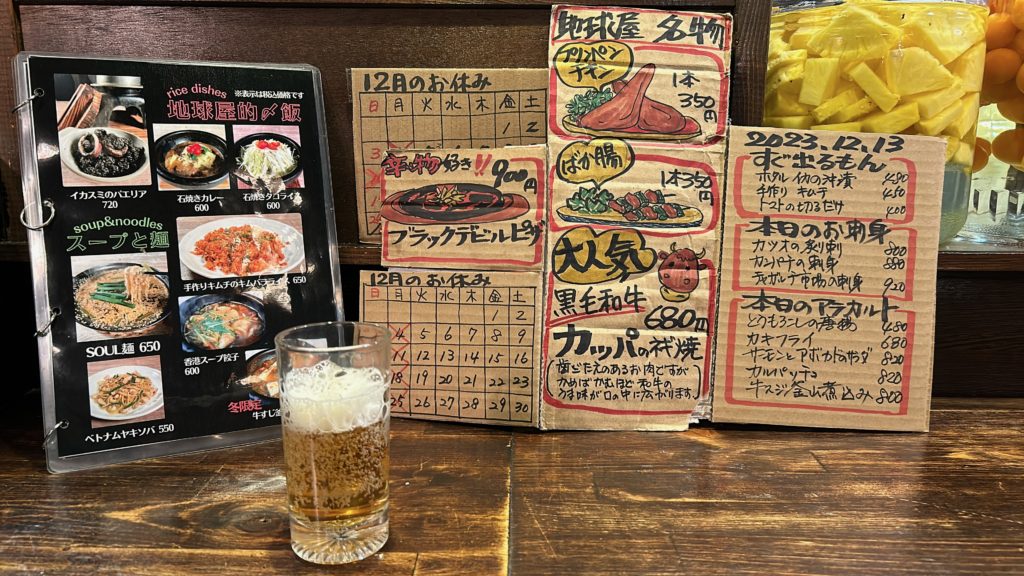 rice dishes
※表示は税込価格です
地球屋的〆飯
イカスミのパエリア
720
石焼きカレー
600
石焼きタコライス
600
soup&noodles
スープと麺
手作りキムチのキムバプライス 650
SOUL麺 650
香港スープ餃子
600
冬限定
牛すじ釜
ベトナムヤキソバ 550
12月のお休み
日 月 火 水 木 金 土
1 2
3
辛い物好き!!
900円
ブラックデビルピザ
12月のお休み
日 月 火 水 木 金 土
1 2
4 5 6 7 8 9
11 12 13 14 15 16
18 19 20 21 22 23
25 26 27 28 29 30
地球屋 名物
チキン
1本
350円
ばか腸
1本350円
大人気
黒毛和牛
680円
カッパの袱焼
歯ごたえのあるお肉ですが
かめばかむ日と和牛の
うま味が口の中に広がります。
2023.12.13
すぐ出るもん
ホタルイカの沖漬 490
手作り キムチ 450
トマトの切るだけ 400
本日のお刺身
カツオの炙り刺 800
カンパチの刺身 880
の刺身 920
本日のアラカルト
とうもろこしの唐揚 480
カキフライ 680
サーモンとアボカドのサラダ 820
カルパッチョ 820
牛スジ釜山煮込み 800